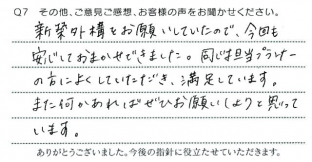 Q7 その他、ご意見ご感想、お客様の声をお聞かせください。
新築外構をお願いしていたので、今回も
安心しておまかせできました。同じ担当プランナー
の方によくしていただき、満足しています。
また何かあればぜひお願いしようと思って
います。
ありがとうございました。今後の指針に役立たせていただきます。